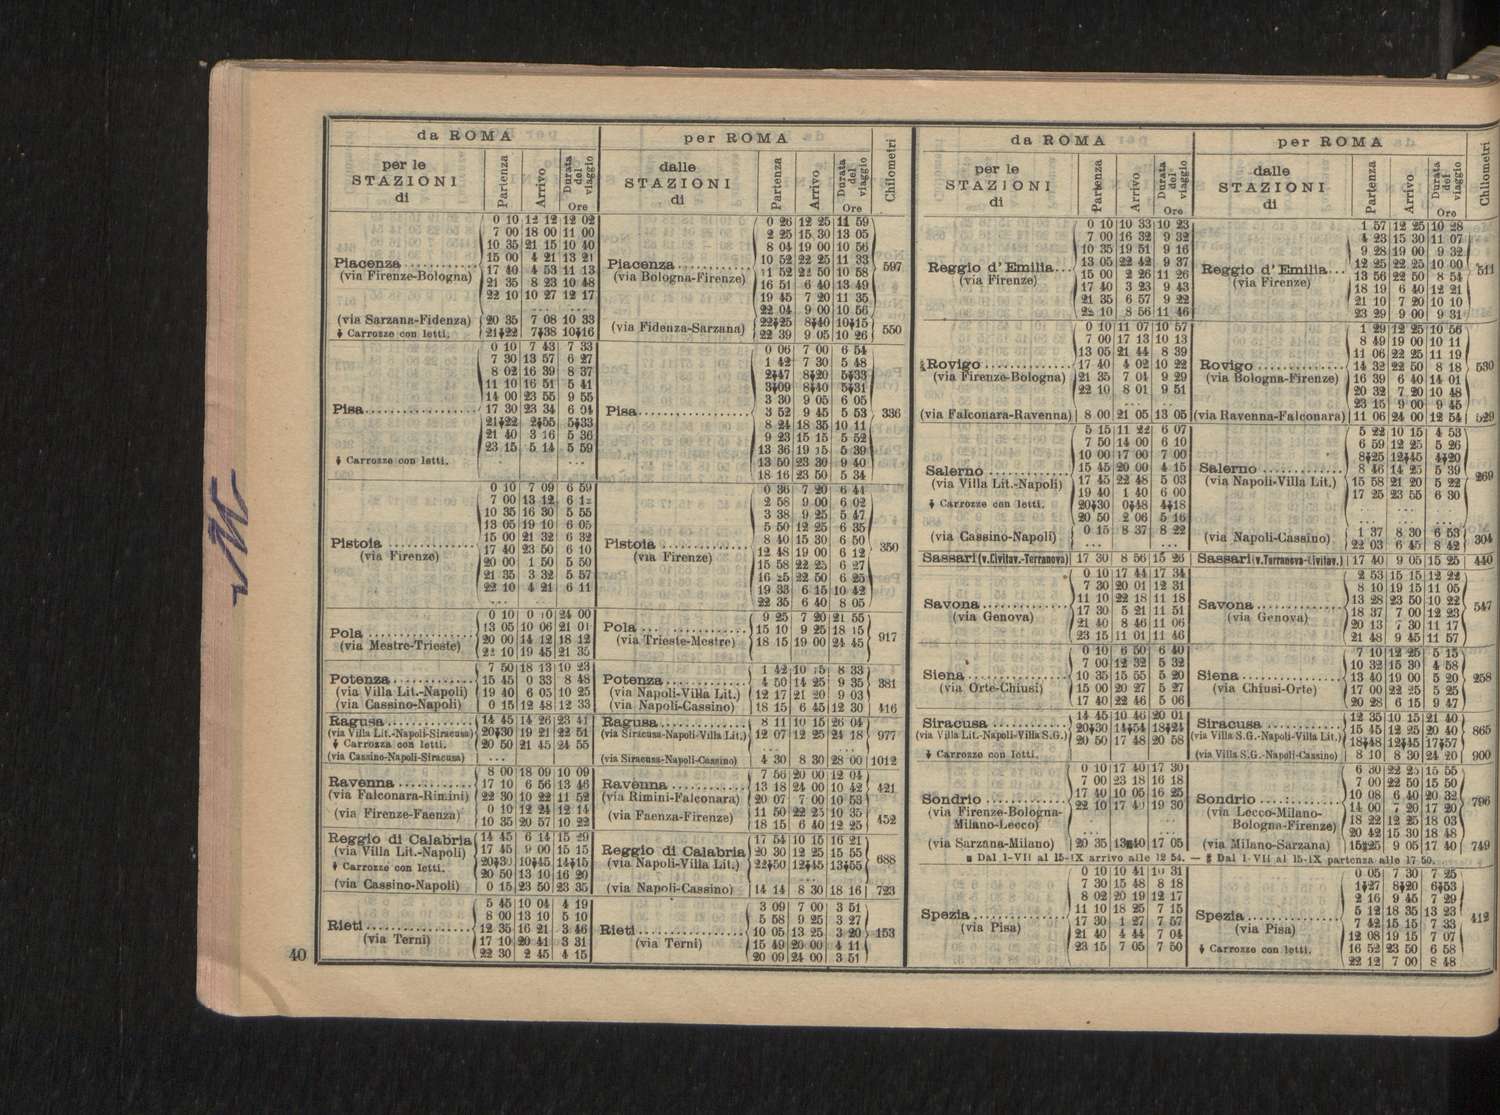 da ROMA
per le
STAZIONI
di
Partenza
Arrivo
Durata del viaggio
Ore
Piacenza
(via Firenze-Bologna)
0 10 12 12 12 02
7 00 18 00 11 00
10 35 21 15 10 40
15 00 4 21 13 21
17 40 4 53 11 13
21 35 8 23 10 48
22 10 10 27 12 17
(via Sarzana-Fidenza) 20 35 7 08 10 33
Carrozze con letti. 21 22 7 38 10 16
Pisa
0 10 7 43 7 33
7 30 13 57 6 27
8 02 16 39 8 37
11 10 16 51 5 41
14 00 23 55 9 55
17 30 23 34 6 04
21 22 2 55 5 33
21 40 3 16 5 36
23 15 5 14 5 59
Carrozze con letti.
Pistoia
(via Firenze)
0 10 7 09 6 59
7 00 13 12 6 12
10 35 16 30 5 55
13 05 19 10 6 05
15 00 21 32 6 32
17 40 23 50 6 10
20 00 1 50 5 50
21 35 3 32 5 57
22 10 4 21 6 11
Pola
(via Mestre-Trieste)
0 10 0 10 24 00
13 05 10 06 21 01
20 00 14 12 18 12
22 10 19 45 21 35
Potenza
(via Villa Lit.-Napoli)
7 50 18 13 10 23
15 45 0 33 8 48
19 40 6 05 10 25
(via Cassino-Napoli) 0 15 12 48 12 33
Ragusa
(via Villa Lit.-Napoli-Siracusa)
Carrozza con letti.
14 45 14 26 23 41
20 30 19 21 22 51
20 50 21 45 24 55
(via Cassino-Napoli-Siracusa) ...
Ravenna
(via Falconara-Rimini)
8 00 18 09 10 09
17 10 6 56 13 46
22 30 10 22 11 52
(via Firenze-Faenza)
0 10 12 24 12 14
10 35 20 57 10 22
Reggio di Calabria
(via Villa Lit.-Napoli)
Carrozze con letti.
14 45 6 14 15 29
17 45 9 00 15 15
20 30 10 45 14 15
20 50 13 10 16 20
(via Cassino-Napoli) 0 15 23 50 23 35
Rieti
(via Terni)
5 45 10 04 4 19
8 00 13 10 5 10
12 35 16 21 3 46
17 10 20 41 3 31
22 30 2 45 4 15
40
per ROMA
dalle
STAZIONI
di
Partenza
Arrivo
Durata del viaggio
Ore
Chilometri
Piacenza
(via Bologna-Firenze)
0 26 12 25 11 59
2 25 15 30 13 05
8 04 19 00 10 56
10 52 22 25 11 33
11 52 22 50 10 58
16 51 6 40 13 49
19 45 7 20 11 35
22 04 9 00 10 56
597
(via Fidenza-Sarzana)
22 25 8 40 10 15
22 39 9 05 10 26
550
Pisa
0 06 7 00 6 54
1 42 7 30 5 48
2 47 8 20 5 33
3 09 8 40 5 31
3 30 9 05 6 05
3 52 9 45 5 53
8 24 18 35 10 11
9 23 15 15 5 52
13 36 19 15 5 39
13 50 23 30 9 40
18 16 23 50 5 34
336
Pistoia
(via Firenze)
0 36 7 20 6 44
2 58 9 00 6 02
3 38 9 25 5 47
5 50 12 25 6 35
8 40 15 30 6 50
12 48 19 00 6 12
15 58 22 25 6 27
16 25 22 50 6 25
19 33 6 15 10 42
22 35 6 40 8 05
350
Pola
(via Trieste-Mestre)
9 25 7 20 21 55
15 10 9 25 18 15
18 15 19 00 24 45
917
Potenza
(via Napoli-Villa Lit.)
1 42 10 15 8 33
4 50 14 25 9 35
12 17 21 20 9 03
381
(via Napoli-Cassino) 18 15 6 45 12 30 416
Ragusa
(via Siracusa-Napoli-Villa Lit.)
8 11 10 15 26 04
12 07 12 25 24 18
977
(via Siracusa-Napoli-Cassino) 4 30 8 30 28 00 1012
Ravenna
(via Rimini-Falconara)
7 56 20 00 12 04
13 18 24 00 10 42
20 07 7 00 10 53
421
(via Faenza-Firenze)
11 50 22 25 10 35
18 15 6 40 12 25
452
Reggio di Calabria
(via Napoli-Villa Lit.)
17 54 10 15 16 21
20 30 12 25 15 55
22 50 12 45 13 55
688
(via Napoli-Cassino) 14 14 8 30 18 16 723
Rieti
(via Terni)
3 09 7 00 3 51
5 58 9 25 3 27
10 05 13 25 3 20
15 49 20 00 4 11
20 09 24 00 3 51
153
da ROMA
per le
STAZIONI
di
Partenza
Arrivo
Durata del viaggio
Ore
Reggio d'Emilia
(via Firenze)
0 10 10 33 10 23
7 00 16 32 9 32
10 35 19 51 9 16
13 05 22 42 9 37
15 00 2 26 11 26
17 40 3 23 9 43
21 35 6 57 9 22
22 10 8 56 11 46
Rovigo
(via Firenze-Bologna)
0 10 11 07 10 57
7 00 17 13 10 13
13 05 21 44 8 39
17 40 4 02 10 22
21 35 7 04 9 29
22 10 8 01 9 51
(via Falconara-Ravenna) 8 00 21 05 13 05
Salerno
(via Villa Lit.-Napoli)
Carrozze con letti.
5 15 11 22 6 07
7 50 14 00 6 10
10 00 17 00 7 00
15 45 20 00 4 15
17 45 22 48 5 03
19 40 1 40 6 00
20 30 0 48 4 18
20 50 2 06 5 16
(via Cassino-Napoli) 0 15 8 37 8 22
Sassari (v. Civitav.-Terranova) 17 30 8 56 15 26
Savona
(via Genova)
0 10 17 44 17 34
7 30 20 01 12 31
11 10 22 18 11 18
17 30 5 21 11 51
21 40 8 46 11 06
23 15 11 01 11 46
Siena
(via Orte-Chiusi)
0 10 6 50 6 40
7 00 12 32 5 32
10 35 15 55 5 20
15 00 20 27 5 27
17 40 22 46 5 06
Siracusa
(via Villa Lit.-Napoli-Villa S.G.)
Carrozze con letti.
14 45 10 46 20 01
20 30 14 54 18 24
20 50 17 48 20 58
Sondrio
(via Firenze-Bologna-
Milano-Lecco)
0 10 17 40 17 30
7 00 23 18 16 18
17 40 10 05 16 25
22 10 17 40 19 30
(via Sarzana-Milano) 20 35 13 40 17 05
Dal 1-VII al 15-IX arrivo alle 12 54. — Dal 1-VII al 15-IX partenza alle 17 50.
Spezia
(via Pisa)
0 10 10 41 10 31
7 30 15 48 8 18
8 02 20 19 12 17
11 10 18 25 7 15
17 30 1 27 7 57
21 40 4 44 7 04
23 15 7 05 7 50
per ROMA
dalle
STAZIONI
di
Partenza
Arrivo
Durata del viaggio
Ore
Chilometri
Reggio d'Emilia
(via Firenze)
1 57 12 25 10 28
4 23 15 30 11 07
9 28 19 00 9 32
12 25 22 25 10 00
13 56 22 50 8 54
18 19 6 40 12 21
21 10 7 20 10 10
23 29 9 00 9 31
511
Rovigo
(via Bologna-Firenze)
1 29 12 25 10 56
8 49 19 00 10 11
11 06 22 25 11 19
14 32 22 50 8 18
16 39 6 40 14 01
20 32 7 20 10 48
23 15 9 00 9 45
530
(via Ravenna-Falconara) 11 06 24 00 12 54 529
Salerno
(via Napoli-Villa Lit.)
5 22 10 15 4 53
6 59 12 25 5 26
8 25 12 45 4 20
8 46 14 25 5 39
15 58 21 20 5 22
17 25 23 55 6 30
269
(via Napoli-Cassino)
1 37 8 30 6 53
22 03 6 45 8 42
304
Sassari (v. Terranova-Civitav.) 17 40 9 05 15 25 440
Savona
(via Genova)
2 53 15 15 12 22
8 10 19 15 11 05
13 28 23 50 10 22
18 37 7 00 12 23
20 13 7 30 11 17
21 48 9 45 11 57
547
Siena
(via Chiusi-Orte)
7 10 12 25 5 15
10 32 15 30 4 58
13 40 19 00 5 20
17 00 22 25 5 25
20 28 6 15 9 47
258
Siracusa
(via Villa S.G.-Napoli-Villa Lit.)
12 35 10 15 21 40
15 45 12 25 20 40
18 48 12 45 17 57
865
(via Villa S.G.-Napoli-Cassino) 8 10 8 30 24 20 900
Sondrio
(via Lecco-Milano-
Bologna-Firenze)
6 30 22 25 15 55
7 00 22 50 15 50
10 08 6 40 20 32
14 00 7 20 17 20
18 22 12 25 18 03
20 42 15 30 18 48
796
(via Milano-Sarzana) 15 25 9 05 17 40 749
Spezia
(via Pisa)
Carrozze con letti.
0 05 7 30 7 25
1 27 8 20 6 53
2 16 9 45 7 29
5 12 18 35 13 23
7 42 15 15 7 33
12 08 19 15 7 07
16 52 23 50 6 58
22 12 7 00 8 48
412